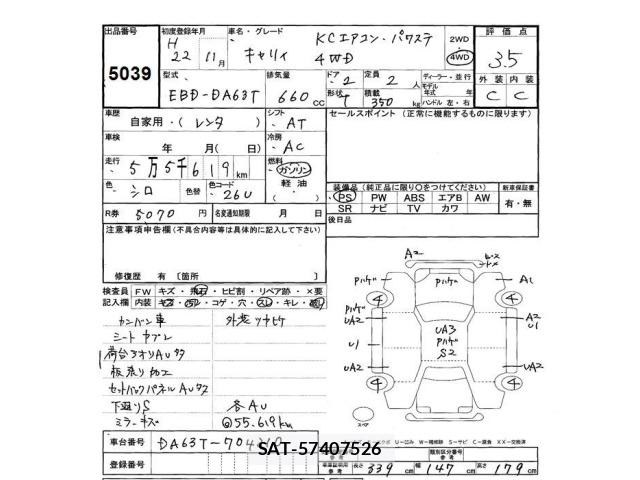 出品番号 初度登録年月 車名・グレード KCエアコン・パワステ 2WD 評価点
5039 H 22年 11月 キャリイ 4WD 4WD 3.5
型式 排気量 ドア 2 定員 2人 ディーラー・並行 外装 内装
EBD-DA63T 660cc 形状 T 積載 350kg モデル年式 年 ハンドル 左・右 C C
車歴 自家用・(レンタ) シフト AT セールスポイント (正常に機能するものに限ります)
車検 年 月( 日) 冷房 AC
走行 5万5千619km 燃料 ガソリン 軽油
色 シロ 色替 色コード 26U 装備品 (純正品に限り○をつけてください) 新車保証書
PS PW ABS エアB AW 有・無
SR ナビ TV カワ
R券 5070円 名変通知期限 月 日 後日品
注意事項申告欄(不具合内容等は具体的に記入して下さい)
修復歴 有 〔箇所 〕
検査員 FW キズ・飛石・ヒビ割・リペア跡・×要
記入欄 内装 キズ・コゲ・穴・スレ・キレ・
カンバン車 外装ツヤヒケ
シートヤブレ
荷台3オリAUサ
板張り加工
セットバックパネルAUサ
下廻りS 各AU
ミラーキズ @55.619km
A2 A1 パハゲ パハゲ 4 4
パハゲ UA2 U1 UA2 UA3 パハゲ S2 A2 U1 UA2
4 4 スペア
車台番号 DA63T-704
SAT-57407526
登録番号 長さ 339cm 幅 147cm 高さ 179cm